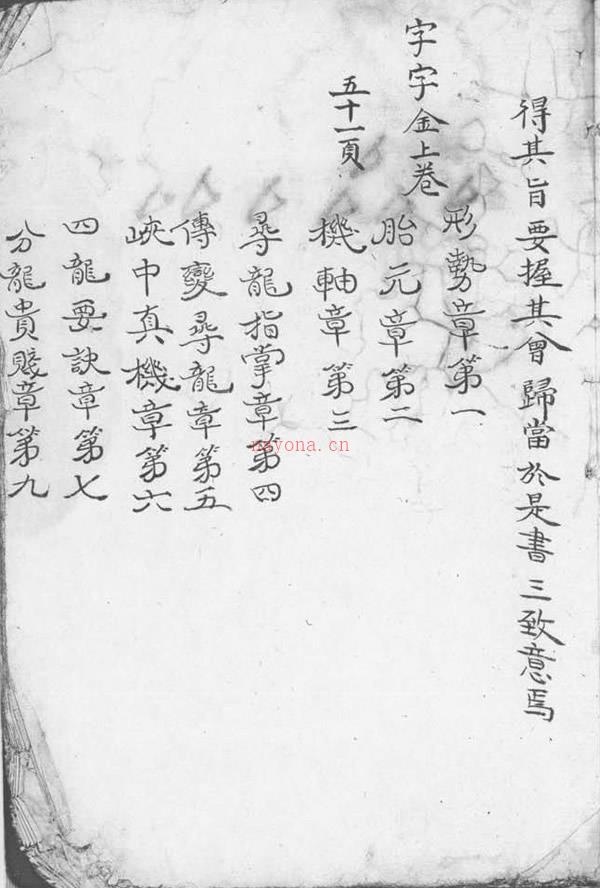 得其旨要握其會歸當於是書三致意焉
字字金上卷
五十一頁
形勢章第一
胎元章第二
機軸章第三
尋龍指掌章第四
傳變尋龍章第五
峽中真機章第六
四龍要訣章第七
分龍貴賤章第九
nayona.cn